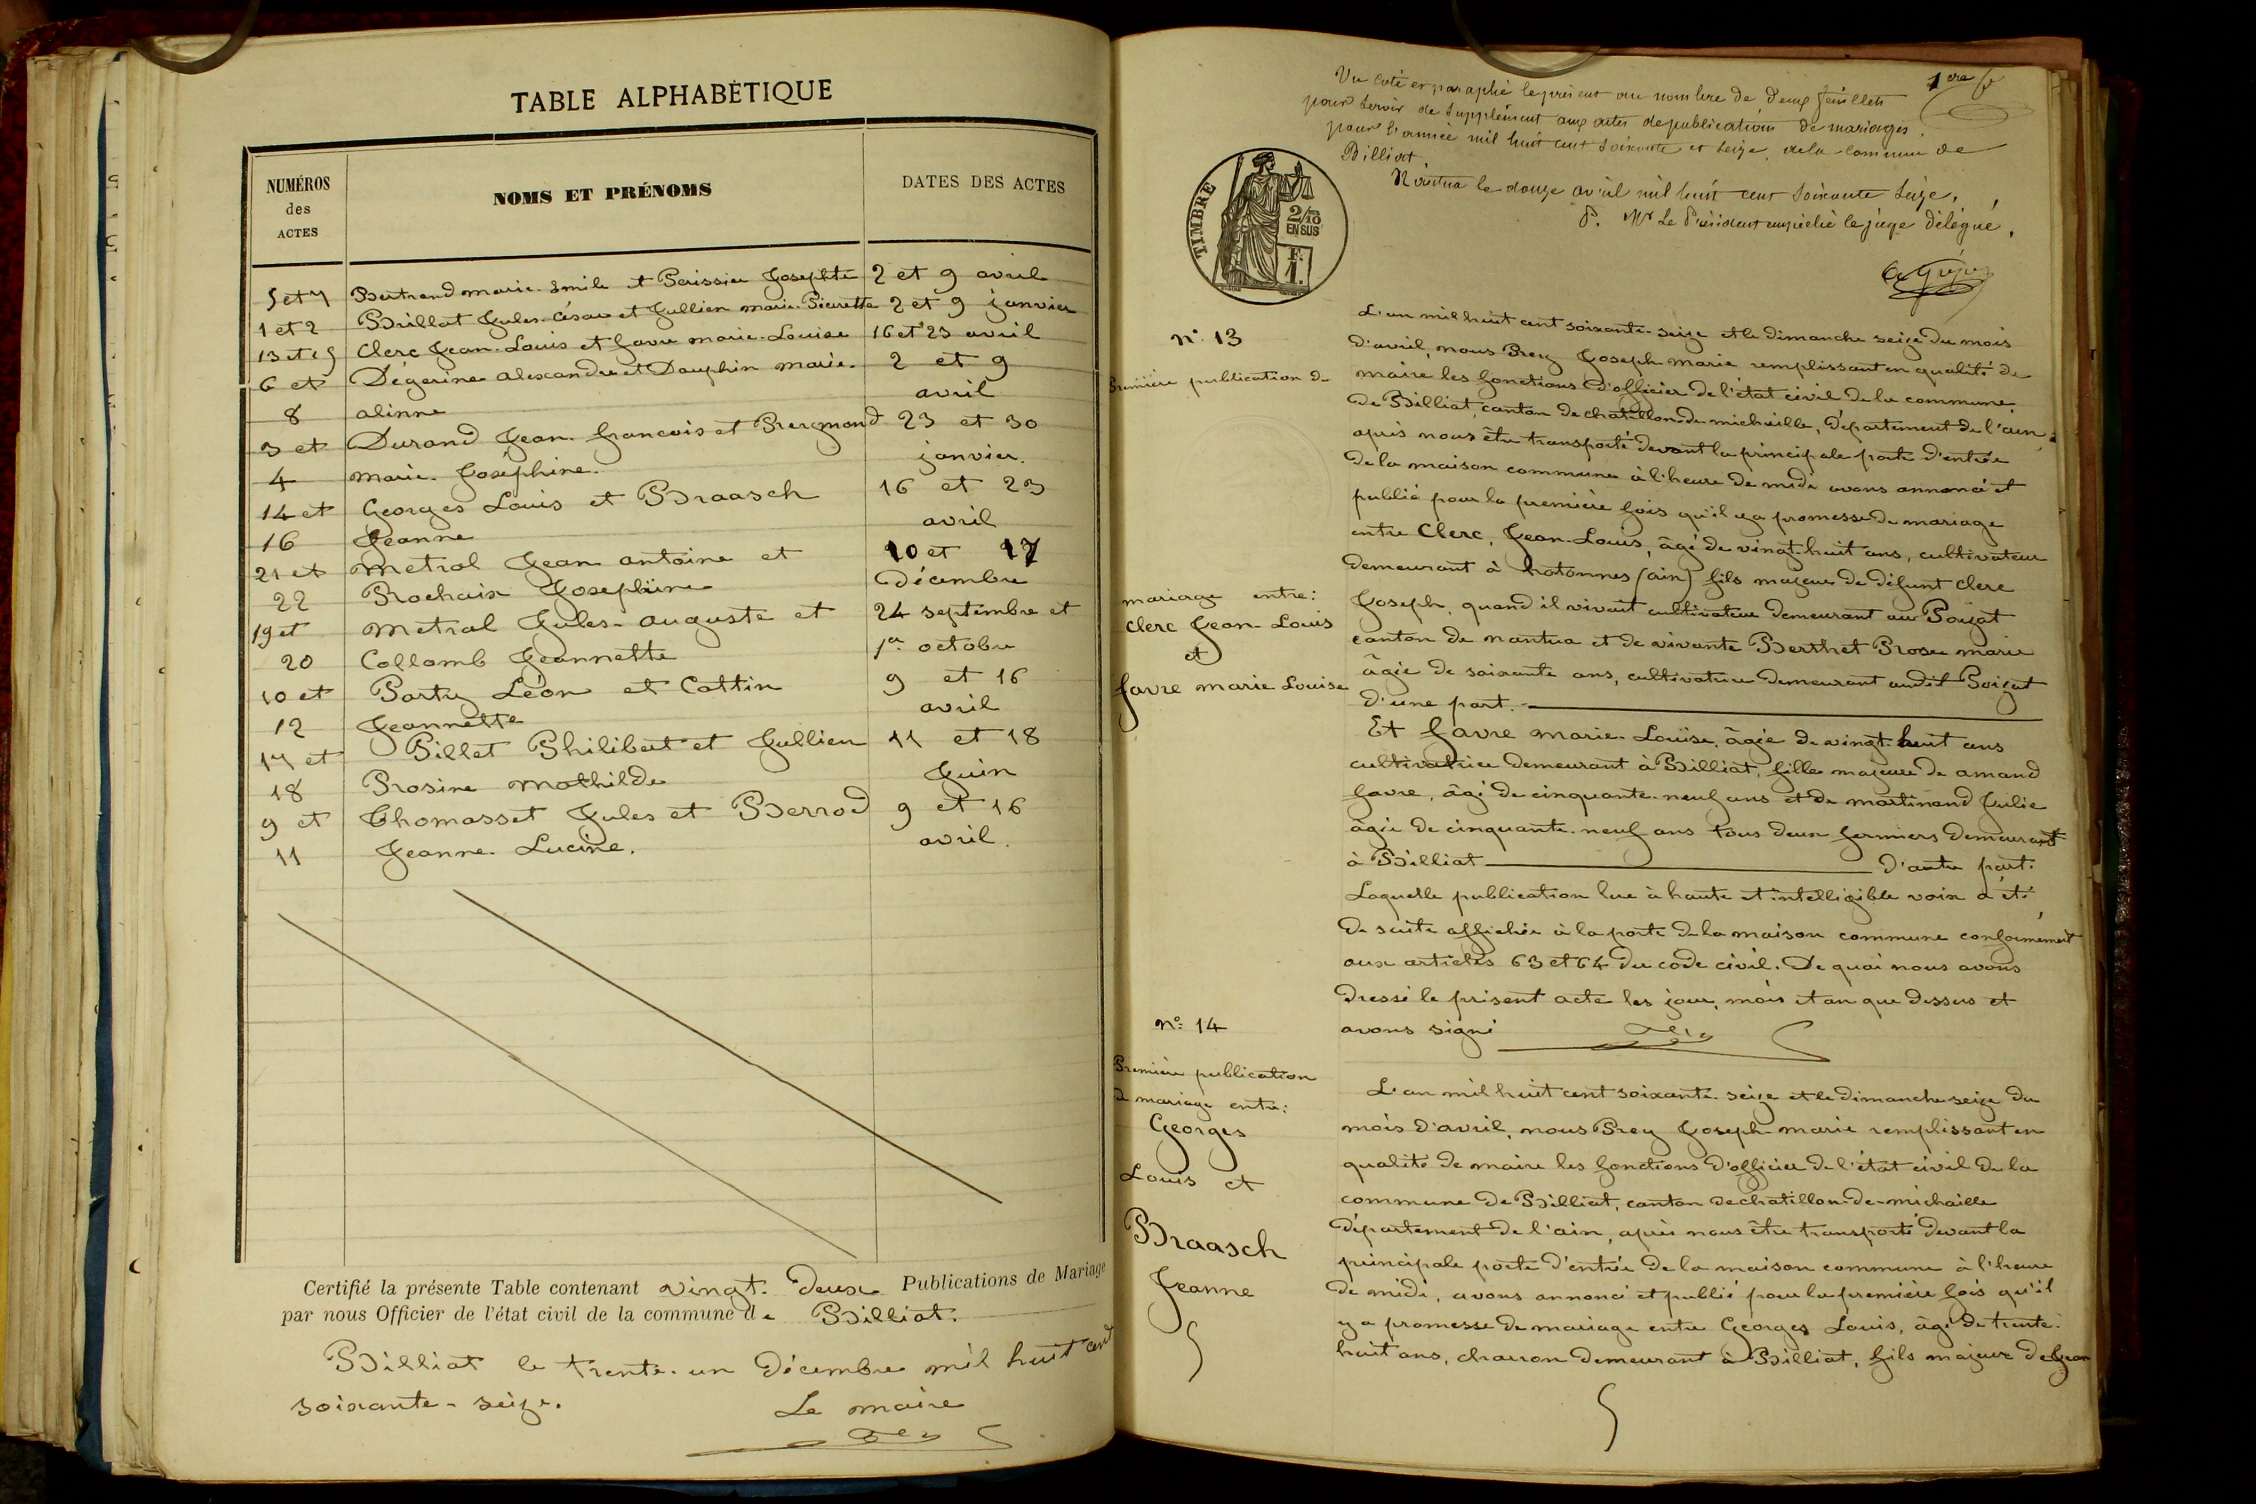 TABLE ALPHABÉTIQUE
NUMÉROS des ACTES
NOMS ET PRÉNOMS
DATES DES ACTES
5 et 7 Bertrand marie-Emile et Perissier Josephte 2 et 9 avril
1 et 2 Brillat Jules-César et Jullien marie-Pierrette 2 et 9 janvier
13 et 15 Clerc Jean-Louis et favre marie-Louise 16 et 23 avril
6 et Dégerine alexandre et Dauphin marie- 2 et 9
8 alinne avril
3 et Durand Jean-francois et Bregmond 23 et 30
4 marie-Joséphine. janvier.
14 et Georges Louis et Braasch 16 et 23
16 Jeanne avril
21 et metral Jean antoine et 10 et 17
22 Rochaix Josephine décembre
19 et metral Jules-auguste et 24 septembre et
20 Collomb Jeannette 1er octobre
10 et Party Léon et Cottin 9 et 16
12 Jeannette avril
17 et Pillet Philibert et Jullien 11 et 18
18 Rosine mathilde Juin
9 et Thomasset Jules et Berrod 9 et 16
11 Jeanne-Lucine. avril.
Certifié la présente Table contenant vingt-deux Publications de Mariage
par nous Officier de l'état civil de la commune de Billiat.
Billiat le trente-un décembre mil huit cent
soixante-seize.
Le maire
1ere
Vu coté et paraphé le présent au nombre de deux feuillets
pour servir de supplément aux actes de publications de mariages
pour l'année mil huit cent soixante et seize, de la commune de
Billiat.
Nantua le douze avril mil huit cent soixante seize,
P. Mr Le Président empêché le juge délégué,
TIMBRE
2/10
EN SUS
F.
1.
n° 13
Première publication de
mariage entre:
Clerc Jean-Louis
et
favre marie Louise
L'an mil huit cent soixante-seize et le dimanche seize du mois
d'avril, nous Brey Joseph-marie remplissant en qualité de
maire les fonctions d'officier de l'état civil de la commune
de Billiat, canton de chatillon-de-michaille, département de l'ain,
après nous être transporté devant la principale porte d'entrée
de la maison commune à l'heure de midi avons annoncé et
publié pour la première fois qu'il y a promesse de mariage
entre Clerc, Jean-Louis, âgé de vingt-huit ans, cultivateur
demeurant à hotonnes (ain) fils majeur de défunt clerc
Joseph, quand il vivait cultivateur demeurant au Poizat
canton de nantua et de vivante Berthet Rose marie
âgée de soixante ans, cultivatrice demeurant audit Poizat
d'une part.
Et favre marie-Louise, âgée de vingt-huit ans
cultivatrice demeurant à Billiat, fille majeure de amand
favre, âgé de cinquante-neuf ans et de martinand Julie
âgée de cinquante-neuf ans tous deux fermiers demeurant
à Billiat d'autre part.
Laquelle publication lue à haute et intelligible voix a été
de suite affichée à la porte de la maison commune conformément
aux articles 63 et 64 du code civil. De quoi nous avons
dressé le présent acte les jour, mois et an que dessus et
avons signé
n° 14
Première publication
de mariage entre:
Georges
Louis et
Braasch
Jeanne
L'an mil huit cent soixante-seize et le dimanche seize du
mois d'avril, nous Brey Joseph-marie remplissant en
qualité de maire les fonctions d'officier de l'état civil de la
commune de Billiat, canton de chatillon-de-michaille
département de l'ain, après nous être transporté devant la
principale porte d'entrée de la maison commune à l'heure
de midi, avons annoncé et publié pour la première fois qu'il
y a promesse de mariage entre Georges Louis, âgé de trente-
huit ans, charron demeurant à Billiat, fils majeur de Jean